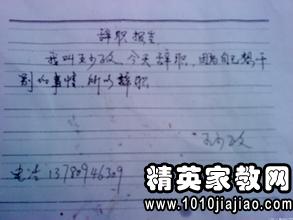 辞职报告
我叫王少政，今天辞职，因为自己想干
别的事情，所以辞职
王少政
电话 13780946309
精英家教网
www.1010jiajiao.com